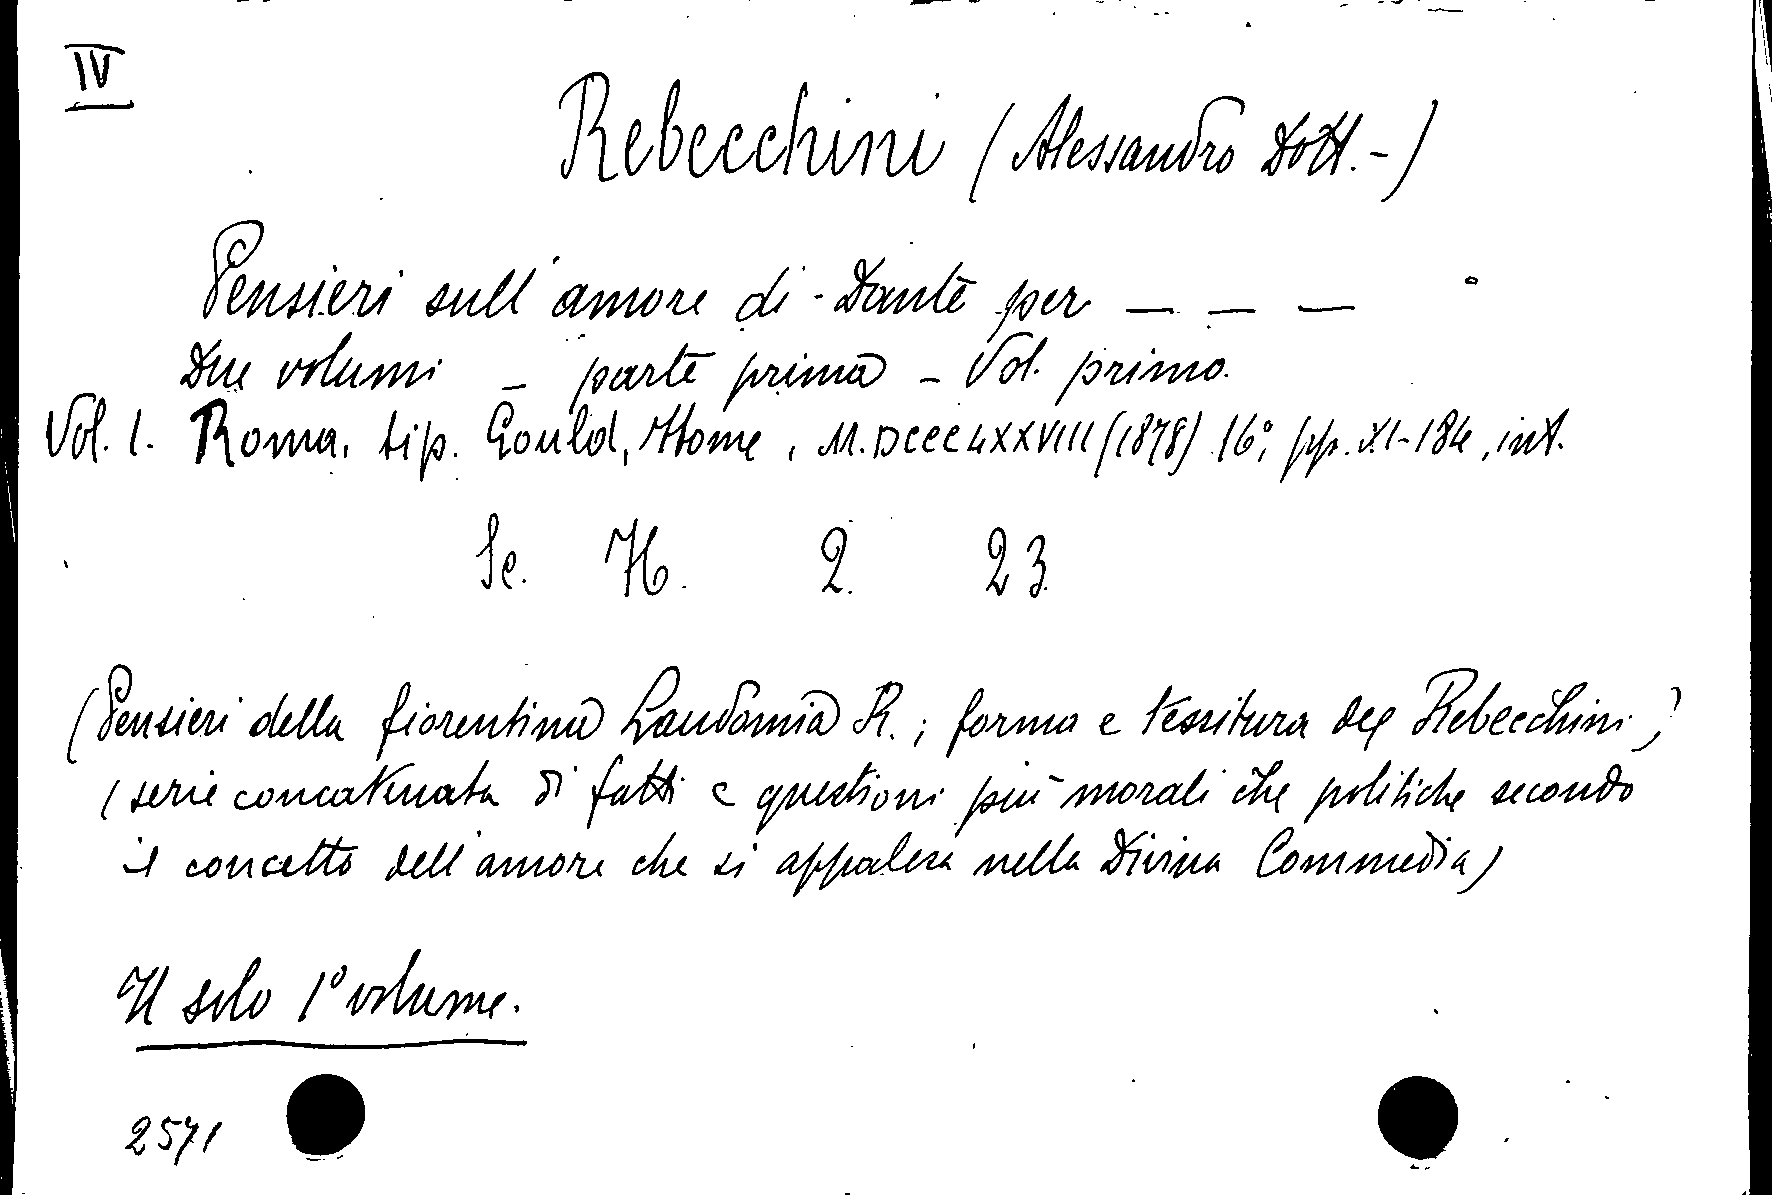 IV
Rebecchini (Alessandro Dott.-)
Pensieri sull'amore di Dante per _ _ _
Due volumi - parte prima - Vol. primo.
Vol. 1. Roma, tip. Gould, Home, M.DCCCLXXVIII (1878) 16°, pp. XI-184, int.
Sc. H. 2. 23.
(Pensieri della fiorentina Laudomia R.; forma e tessitura del Rebecchini)
(serie concatenata di fatti e questioni più morali che politiche secondo
il concetto dell'amore che si appalesa nella Divina Commedia)
Il solo 1° volume.
2571